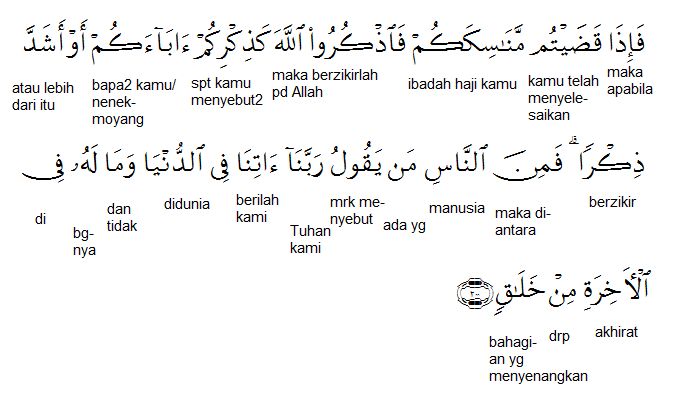 فَإِذَا قَضَيْتُم مَّنَـٰسِكَكُمْ فَٱذْكُرُوا۟ ٱللَّهَ كَذِكْرِكُمْ ءَابَآءَكُمْ أَوْ أَشَدَّ
maka apabila
kamu telah menyele-
saikan
ibadah haji kamu
maka berzikirlah
pd Allah
spt kamu
menyebut2
bapa2 kamu/
nenek-
moyang
atau lebih
dari itu
ذِكْرًا ۗ فَمِنَ ٱلنَّاسِ مَن يَقُولُ رَبَّنَآ ءَاتِنَا فِى ٱلدُّنْيَا وَمَا لَهُۥ فِى
berzikir
maka di-
antara
manusia
ada yg
mrk me-
nyebut
Tuhan
kami
berilah
kami
didunia
dan
tidak
bg-
nya
di
ٱلْـَٔاخِرَةِ مِنْ خَلَـٰقٍ ٢٠٠
akhirat
drp
bahagi-
an yg
menyenangkan